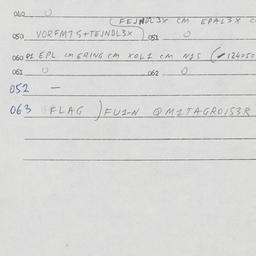 040 0
(FEJNDL3X CM EPAL3X
050 VORFM75+TEJNDL3X 051 0
060 01 EPL CM ERING CM XOL1 CM N1S (✓124050
061 0 062 0
052 –
063 FLAG ) FU1-N @M1TAGR0153R